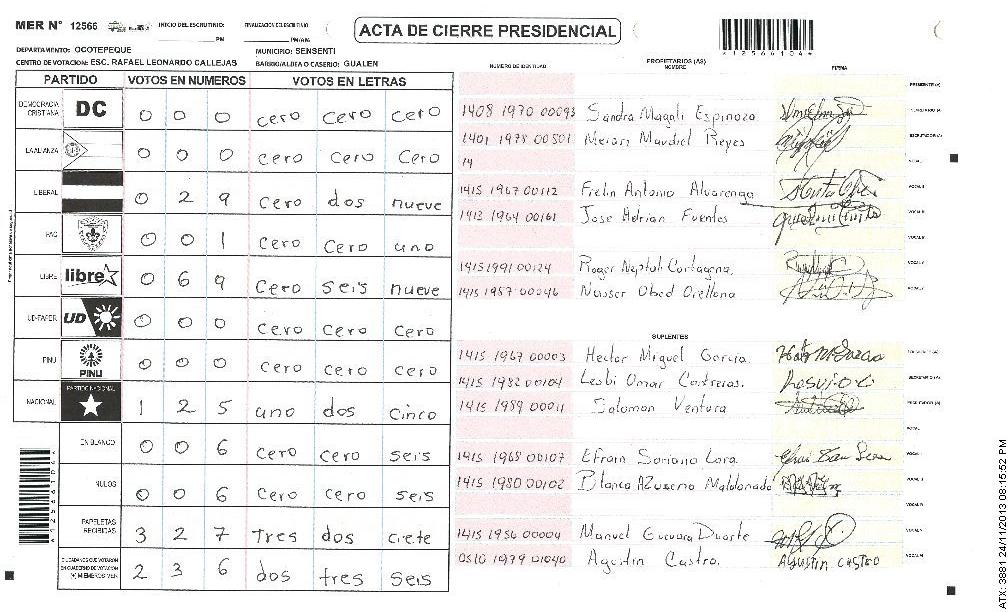 MER N° 12566 INICIO DEL ESCRUTINIO: PM FINALIZACION DEL ESCRUTINIO: PM/AM
ACTA DE CIERRE PRESIDENCIAL
*12566104*
DEPARTAMENTO: OCOTEPEQUE MUNICIPIO: SENSENTI
CENTRO DE VOTACION: ESC. RAFAEL LEONARDO CALLEJAS BARRIO/ALDEA O CASERIO: GUALEN
PARTIDO VOTOS EN NUMEROS VOTOS EN LETRAS
DEMOCRACIA CRISTIANA DC 0 0 0 cero cero cero
LA ALIANZA 0 0 0 cero cero cero
LIBERAL 0 2 9 cero dos nueve
PAC 0 0 1 cero cero uno
LIBRE libre 0 6 9 cero seis nueve
UD-FAPER UD 0 0 0 cero cero cero
PINU PINU 0 0 0 cero cero cero
NACIONAL PARTIDO NACIONAL 1 2 5 uno dos cinco
EN BLANCO 0 0 6 cero cero seis
NULOS 0 0 6 cero cero seis
PAPELETAS RECIBIDAS 3 2 7 Tres dos ciete
CIUDADANOS QUE VOTARON EN CUADERNO DE VOTACION (+) MIEMBROS MER 2 3 6 dos tres seis
NUMERO DE IDENTIDAD PROPIETARIOS (AS) NOMBRE FIRMA
PRESIDENTE (A)
1408 1970 00093 Sandra Magali Espinoza SECRETARIO (A)
1401 1978 00501 Reyes ESCRUTADOR (A)
14 VOCAL I
1415 1967 00112 Antonio Alvarenga VOCAL II
1413 1964 00161 Jose Adrian Fuentes VOCAL III
1415 1991 00124 Roger Neptal Cartagena.
1415 1987 00046 Obed Orellana
SUPLENTES
1415 1967 00003 Hector Miguel Garcia.
1415 1982 00104 Lesbi Omar Contreras. SECRETARIO (A)
1415 1989 00011 Salomon Ventura ESCRUTADOR (A)
1415 1968 00107 Efrain Soriano Lara.
1415 1980 00102 Blanca Azucena Maldonado
1415 1956 00004 Manuel Guevara Duarte
0510 1979 01040 Agustin Castro. AGUSTIN CASTRO
*12566104*
ATX: 3881 24/11/2013 08:15:52 PM